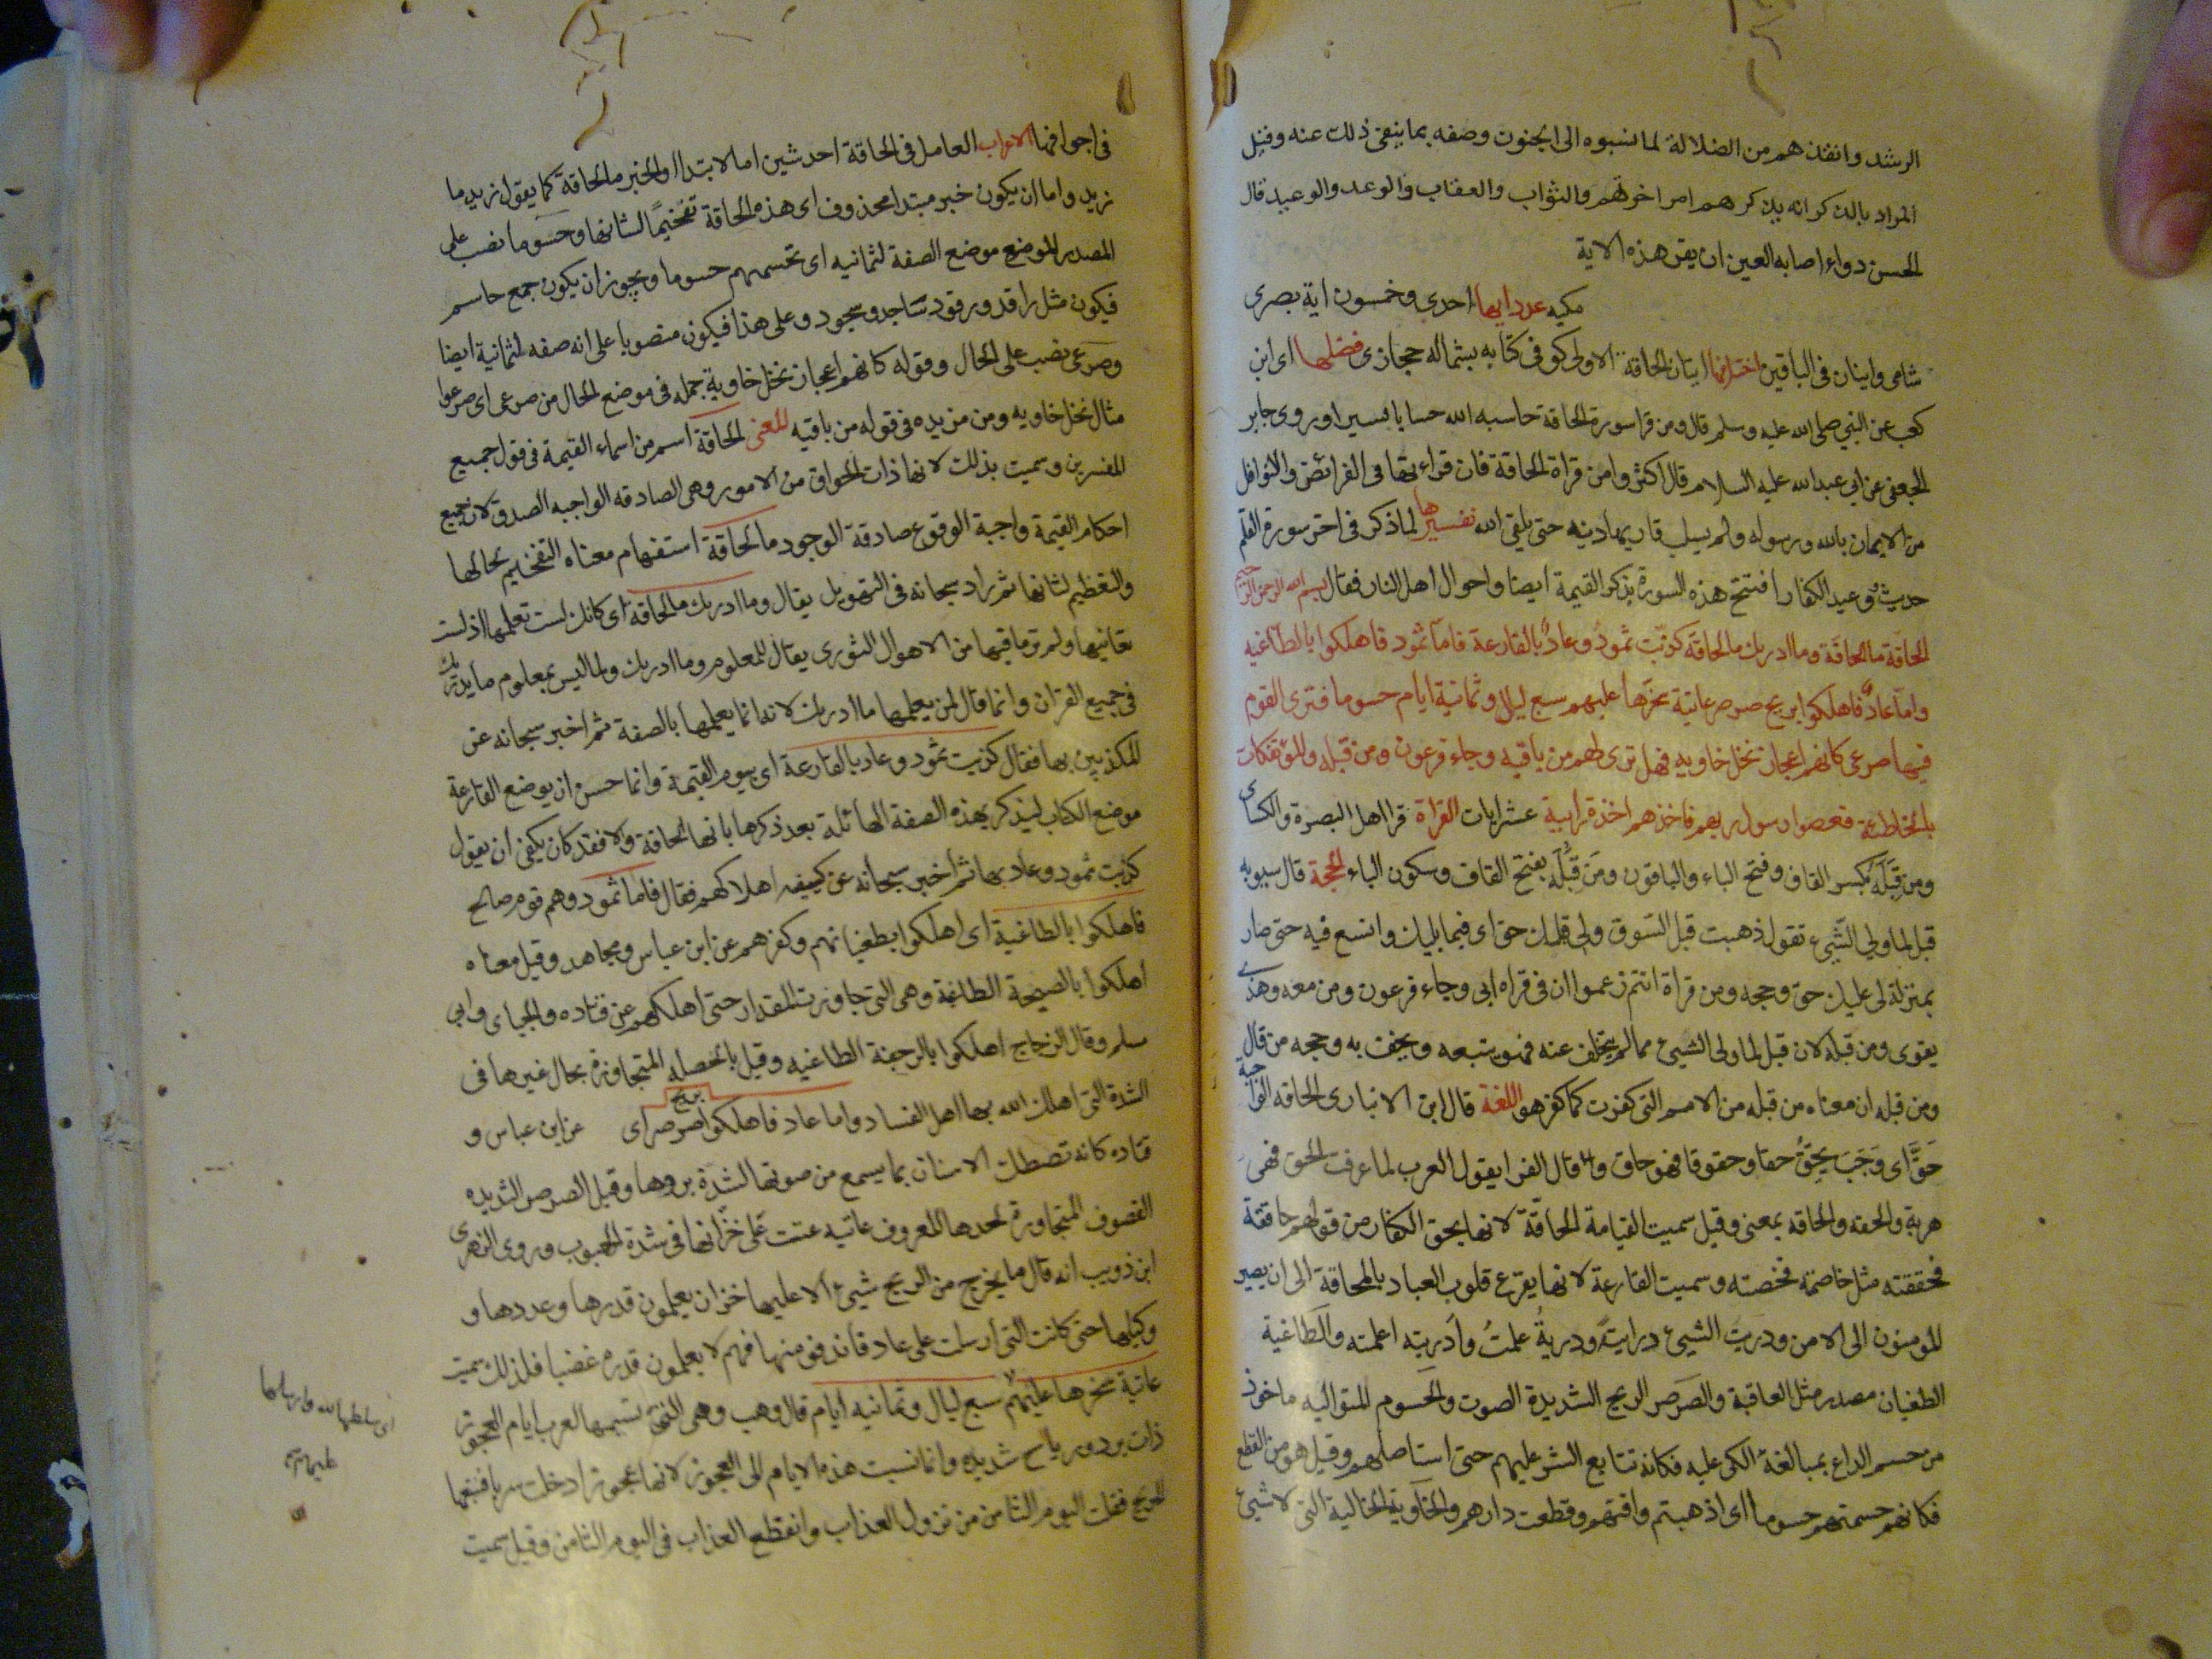 الرشد وانقذهم من الضلالة لما نسبوه الى الجنون وصفه بما ينفى ذلك عنه وقيل
المراد بالذكر انه يذكرهم امر اخرتهم والثواب والعقاب والوعد والوعيد قال
الحسن دواء اصابه العين ان يقر هذه الاية
مكيه عدد ايها احدى وخمسون اية بصرى
شامى واثنان فى الباقين اختلافها ايتان الحاقة الاولى كوفى كتابه بشماله حجازى فضلها ابى ابن
كعب عن النبي صلى الله عليه وسلم قال ومن قرا سورة الحاقة حاسبه الله حسابا يسيرا وروى جابر
الجعفى عن ابي عبد الله عليه السلام قال اكثروا من قراة الحاقة فان قراءتها فى الفرائض والنوافل
من الايمان بالله ورسوله ولم يسلب قاريها دينه حتى يلقى الله تفسيرها لما ذكر فى اخر سورة القلم
حديث وعيد الكفار افتتح هذه السورة بذكر القيمة ايضا واحوال اهل النار فقال بسم الله الرحمن الرحيم
الحاقة ما الحاقة وما ادريك ما الحاقة كذبت ثمود وعاد بالقارعة فاما ثمود فاهلكوا بالطاغيه
واما عاد فاهلكوا بريح صرصر عاتية سخرها عليهم سبع ليال وثمانية ايام حسوما فترى القوم
فيها صرعى كانهم اعجاز نخل خاويه فهل ترى لهم من باقيه وجاء فرعون ومن قبله والمؤتفكات
بالخاطئة فعصوا رسول ربهم فاخذهم اخذة رابية عشر ايات القراة قرا اهل البصرة والكساى
ومن قبله بكسر القاف وفتح الباء والباقون ومن قبله بفتح القاف وسكون الباء الحجة قال سيبويه
قبل لما ولي الشيء تقول ذهبت قبل السوق ولى قبلك حق اى فيما يليك واتسع فيه حتى صار
بمنزلة لى عليك حق وحجه ومن قراة انتم زعموا ان فى قراه ابى وجاء فرعون ومن معه وهذا
يقوى ومن قبله لان قبل لما ولى الشيء مما لم يتخلف عنه فهو يتبعه ويحف به وحجه من قال
ومن قبله ان معناه من قبله من الامم التى كفرت كما كفر هو اللغة قال ابن الانبارى الحاقه الواجبة
حق اى وجب يحق حقا وحقوقا فهو حاق وقال الفرا يقول العرب لما عرفت الحق فهى
هربة والحقه والحاقه بمعنى وقيل سميت القيامة الحاقة لانها يحق الكفار من قولهم حاققته
فحققته مثل خاصمته فخصته وسميت القارعة لانها يقرع قلوب العباد بالمخافة الى ان يصير
المومنون الى الامن ودريت الشيء دراية ودرية علمت وادريته اعلمته والطاغية
الطغيان مصدر مثل العاقبة والصرصر الريح الشديدة الصوت والحسوم المتواليه ماخوذ
من حسم الداء بمبالغة الكى عليه فكانه تتابع الشر عليهم حتى استاصلهم وقيل هو من القطع
فكانهم حسمتهم حسوما اى اذهبتم وافتهم وقطعت دابرهم والخاوية الخالية التى لا شيء
فى اجوافها الاعراب العامل فى الحاقة احد شين اما الابتدا والخبر ما الحاقة كما يقول زيد ما
زيد واما ان يكون خبر مبتدا محذوف اى هذه الحاقة تفخيما لشانها وحسوما نصب على
المصدر الموضع موضع الصفة لثمانيه اى تحسمهم حسوما ويجوز ان يكون جمع حاسم
فيكون مثل راقد ورقود ساجد وسجود وعلى هذا فيكون منصوبا على انه صفه لثمانية ايضا
وصرعى نصب على الحال وقوله كانهم اعجاز نخل خاوية جمله فى موضع الحال من صرعى اى صرعوا
مثال نخل خاويه ومن مزيده فى قوله من باقيه المعنى الحاقة اسم من اسماء القيمة فى قول جميع
المفسرين وسميت بذلك لانها ذات الحواق من الامور وهى الصادقه الواجبه الصدق لان جميع
احكام القيمة واجبة الوقوع صادقة الوجود ما الحاقة استفهام معناه التفخيم لحالها
والتعظيم لشانها ثم زاد سبحانه فى التهويل يقال وما ادريك ما الحاقة اى كانك لست تعلمها اذ لست
تعاينها ولم تر ما فيها من الاهوال الثورى يقال للمعلوم وما ادريك ولما ليس بمعلوم ما يدريك
فى جميع القران وانما قال لمن يعلمها ما ادريك لانه انما يعلمها بالصفة ثم اخبر سبحانه عن
المكذبين بها فقال كذبت ثمود وعاد بالقارعة اى بيوم القيمة وانما حسن ان يوضع القارعة
موضع الكتاب ليذكر بهذه الصفة الهائلة بعد ذكرها بانها الحاقة والا فقد كان يكفى ان يقول
كذبت ثمود وعاد بها ثم اخبر سبحانه عن كيفيه اهلاكهم فقال فاما ثمود وهم قوم صالح
فاهلكوا بالطاغية اى اهلكوا بطغيانهم وكفرهم عن ابن عباس ومجاهد وقيل معناه
اهلكوا بالصيحة الطاغية وهى التى جاوزت المقدار حتى اهلكتهم عن قتاده والجباى وابى
سلم وقال الزجاج اهلكوا بالرجفة الطاغيه وقيل بالخصله المتجاوزة بحال غيرها فى
الشدة التى اهلك الله بها اهل الفساد واما عاد فاهلكوا بريح صرصر اى عن ابن عباس و
قتاده كانه تصطك الاسنان بما يسمع من صوتها لشدة بردها وقيل الصرصر الشديده
العصوف المتجاوزة لحدها المعروف عاتيه عتت على خزانها فى شدة الهبوب وروى الزهرى
ابن ذويب انه قال ما يخرج من الريح شيء الا عليها خزان يعلمون قدرها وعددها و
وكيلها حتى كانت التى ارسلت على عاد فاندفق منها فهم لا يعلمون قدره غضبا فلذلك سميت
عاتية سخرها عليهم سبع ليال وثمانيه ايام قال وهب وهى التى تسميها العرب ايام العجوز
ذات برد ورياح شديده وانما نسبت هذه الايام الى العجوز لانها عجوزا دخلت سربا فتبعها
الريح فقتلت اليوم الثامن من نزول العذاب وانقطع العذاب فى اليوم الثامن وقيل سميت
اى سلطها الله وارسلها
عليهم